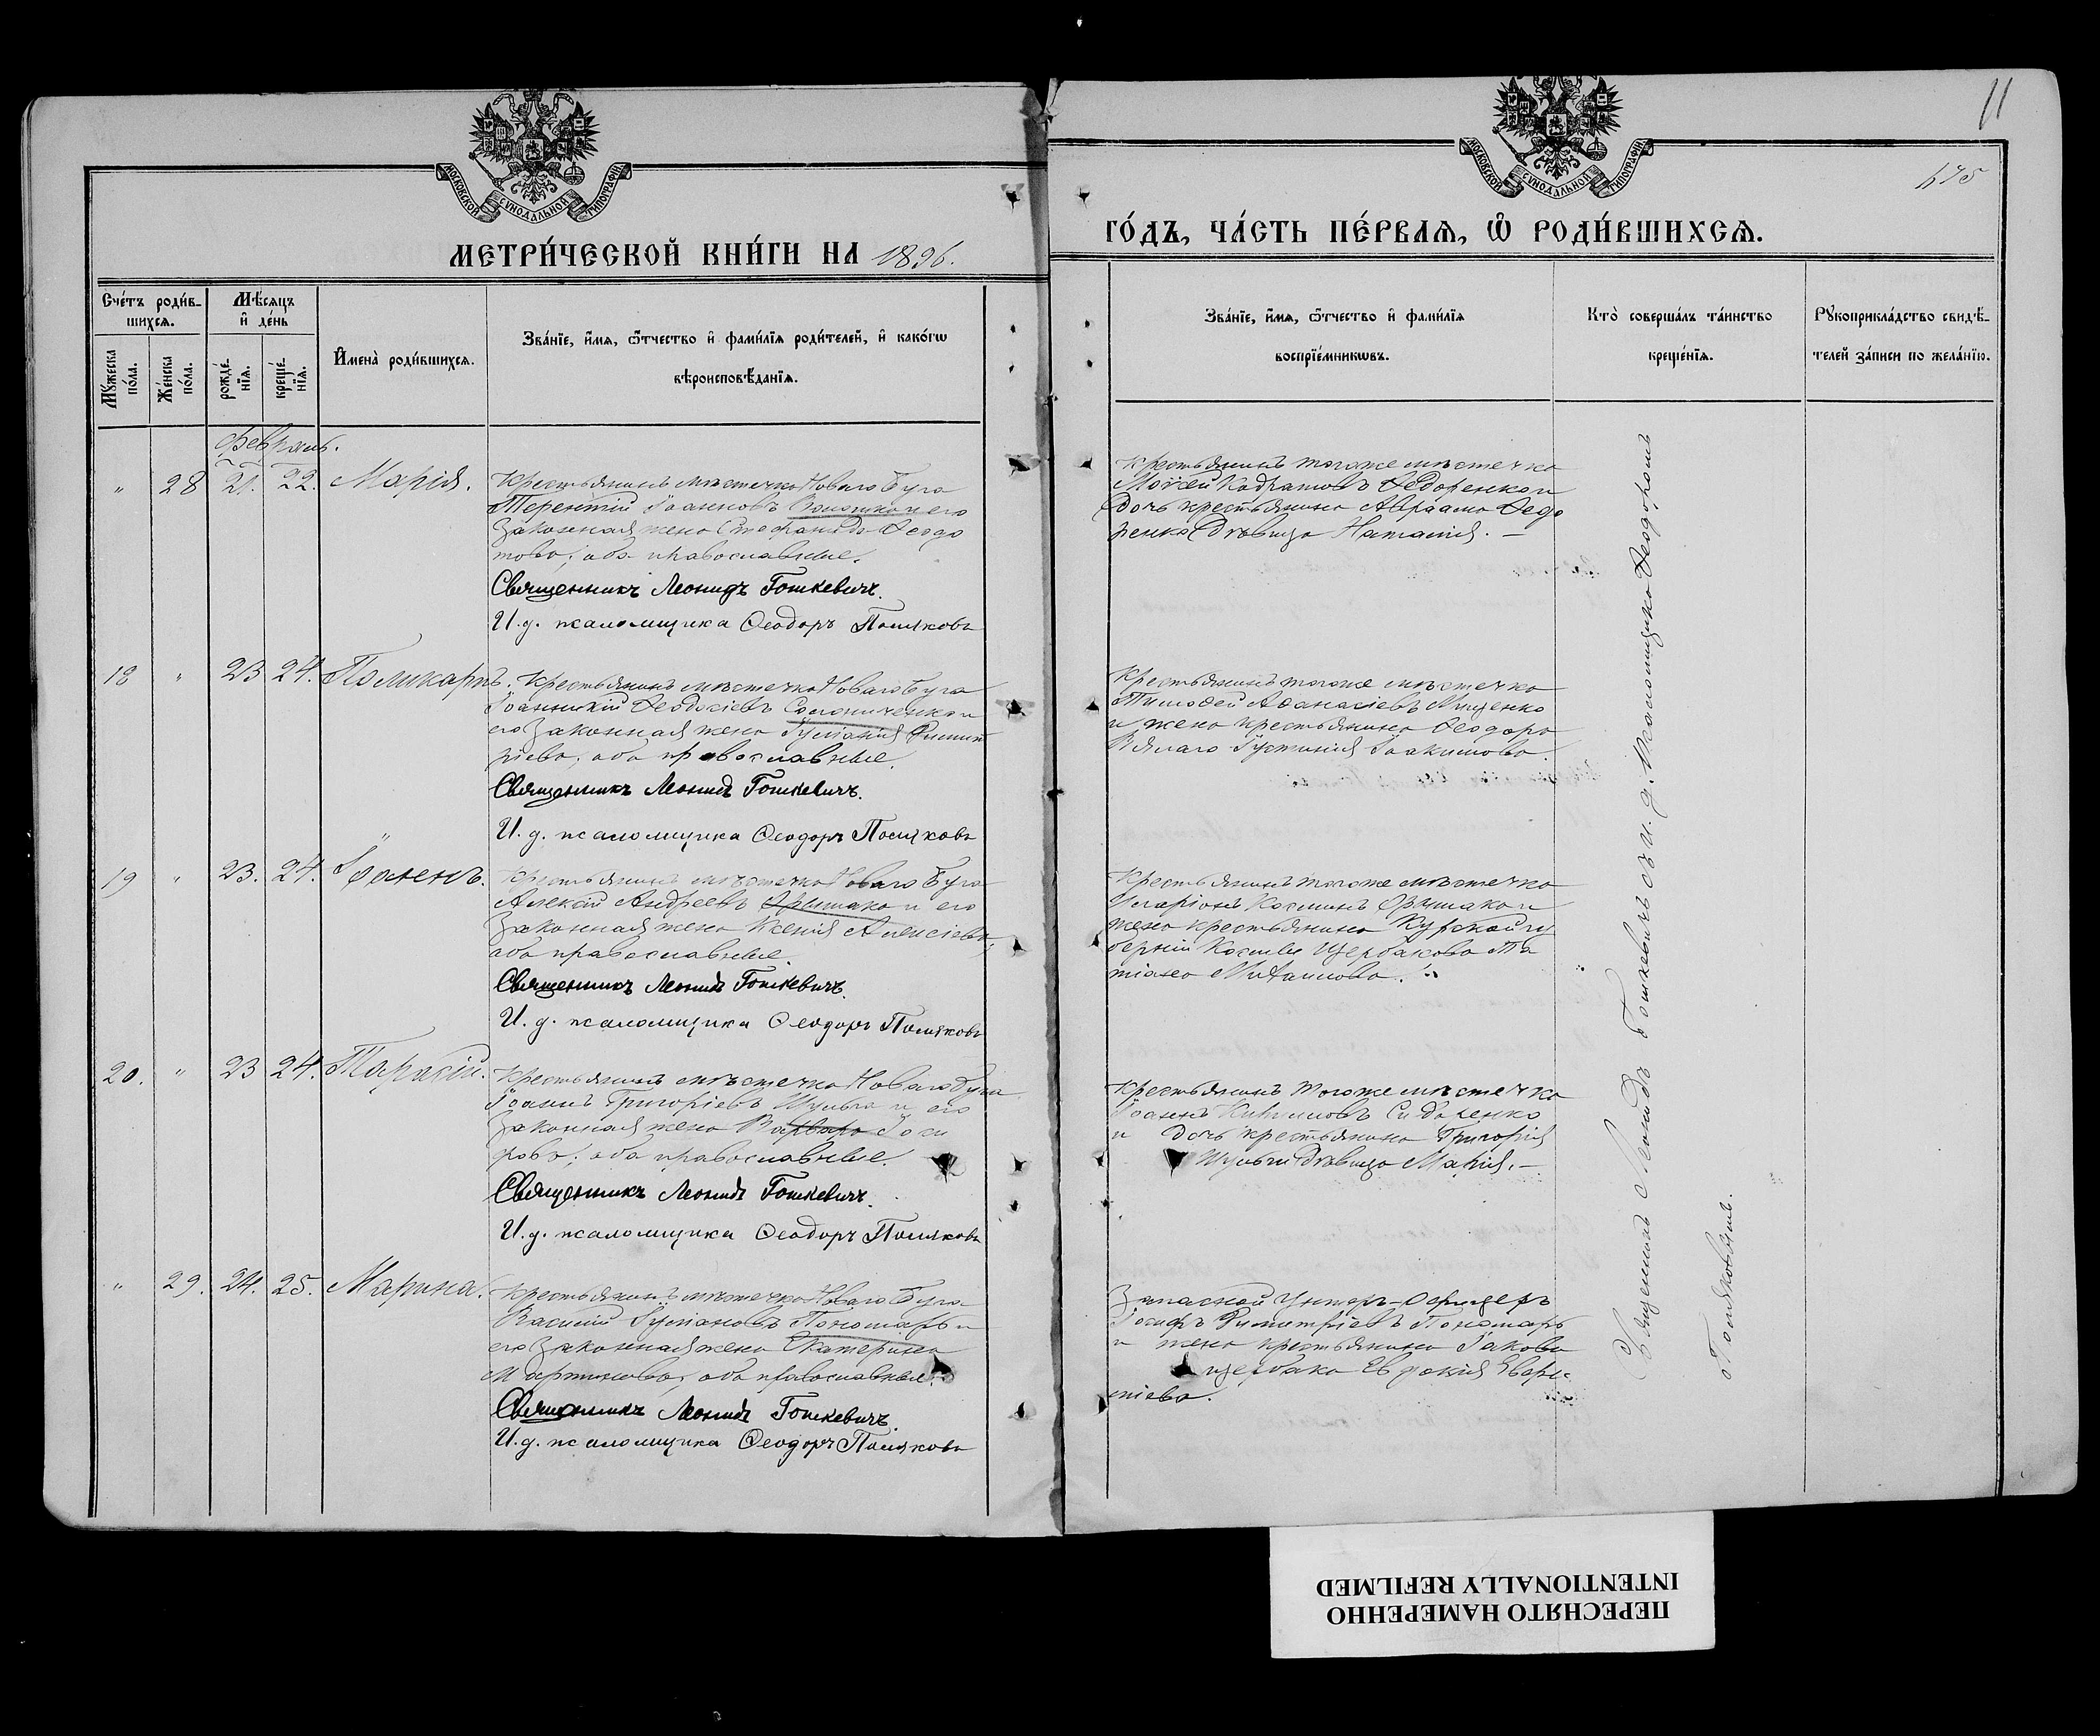 11
475
МОСКОВСКОЙ СУНОДАЛЬНОЙ ТИПОГРАФІИ
МОСКОВСКОЙ СУНОДАЛЬНОЙ ТИПОГРАФІИ
МЕТРИ́ЧЕСКОЙ КНИ́ГИ НА 1896.
ГО́ДЪ, ЧА́СТЬ ПЕ́РВАЯ, Ѽ РОДИ́ВШИХСѦ.
Сче́тъ роди́в-
шихсѧ.
Мѣ́сѧцъ
и҆ де́нь
Мꙋ́жеска по́ла.
Же́нска по́ла.
рожде́-
нїѧ.
креще́-
нїѧ.
И҆мена̀ роди́вшихсѧ.
Зва́нїе, и҆́мѧ, ѻ҆́тчество и҆ фами́лїѧ роди́телей, и҆ како́гѡ
вѣроисповѣ́данїѧ.
Зва́нїе, и҆́мѧ, ѻ҆́тчество и҆ фами́лїѧ
воспрїе́мникѡвъ.
Кто̀ соверша́лъ та́инство
креще́нїѧ.
Рꙋкоприкла́дство свидѣ́-
телей за́писи по жела́нїю.
февраль.
" 28 21. 22. Марія.
Крестьянинъ мѣстечка Новаго Буга
Терентій Іоанновъ и его
Законная жена Стефанида Ѳеодо
това; оба православные.
Священникъ Леонидъ Гошкевичъ.
И. д. псаломщика Ѳеодоръ Поляковъ
Крестьянинъ тогоже мѣстечка
Моѵсей Кодратовъ Ѳедоренко и
дочь крестьянина Авраама Ѳедо
ренка дѣвица Наталія. —
18 " 23 24. Поликарпъ.
Крестьянинъ мѣстечка Новаго Буга
Іоанникій Ѳеодосіевъ Соломиченко и
его Законная жена Іуліанія Димит
ріева; оба православные.
Священникъ Леонидъ Гошкевичъ.
И. д. псаломщика Ѳеодоръ Поляковъ
Крестьянинъ тогоже мѣстечка
Тимоѳей Аѳанасіевъ Мищенко
и жена крестьянина Ѳеодора
Бѣлаго Іустинія Іоакимова.
19 " 23. 24. Іоаннъ.
Крестьянинъ мѣстечка Новаго Буга
Алексій Андреевъ и его
Законная жена Ксенія Алексіева,
оба православные.
Священникъ Леонидъ Гошкевичъ.
И. д. псаломщика Ѳеодоръ Поляковъ
Крестьянинъ тогоже мѣстечка
Иларіонъ Косминъ и
жена крестьянина Курской гу
берніи Космы Щербакова Та
тіана Михаилова.
20. " 23 24. Тарасій.
Крестьянинъ мѣстечка Новаго Буга
Іоаннъ Григоріевъ Шульга и его
Законная жена Варвара
оба православные.
Священникъ Леонидъ Гошкевичъ.
И. д. псаломщика Ѳеодоръ Поляковъ
Крестьянинъ тогоже мѣстечка
Іоаннъ Кирилловъ Сидоренко
и дочь крестьянина Григорія
Шульги дѣвица Марія. —
" 29. 24. 25. Марина.
Крестьянинъ мѣстечка Новаго Буга
Василій Іуліановъ Пономарь и
его Законная жена Екатерина
Мартинова; оба православные.
Священникъ Леонидъ Гошкевичъ.
И. д. псаломщика Ѳеодоръ Поляковъ
Запасной Унтеръ-Офицеръ
Іосифъ Димитріевъ Пономарь
и жена крестьянина Іакова
Щербака Евдокія
Священникъ Леонидъ Гошкевичъ съ и. д. Псаломщика Ѳеодоромъ
Поляковымъ.
ПЕРЕСНЯТО НАМЕРЕННО
INTENTIONALLY REFILMED